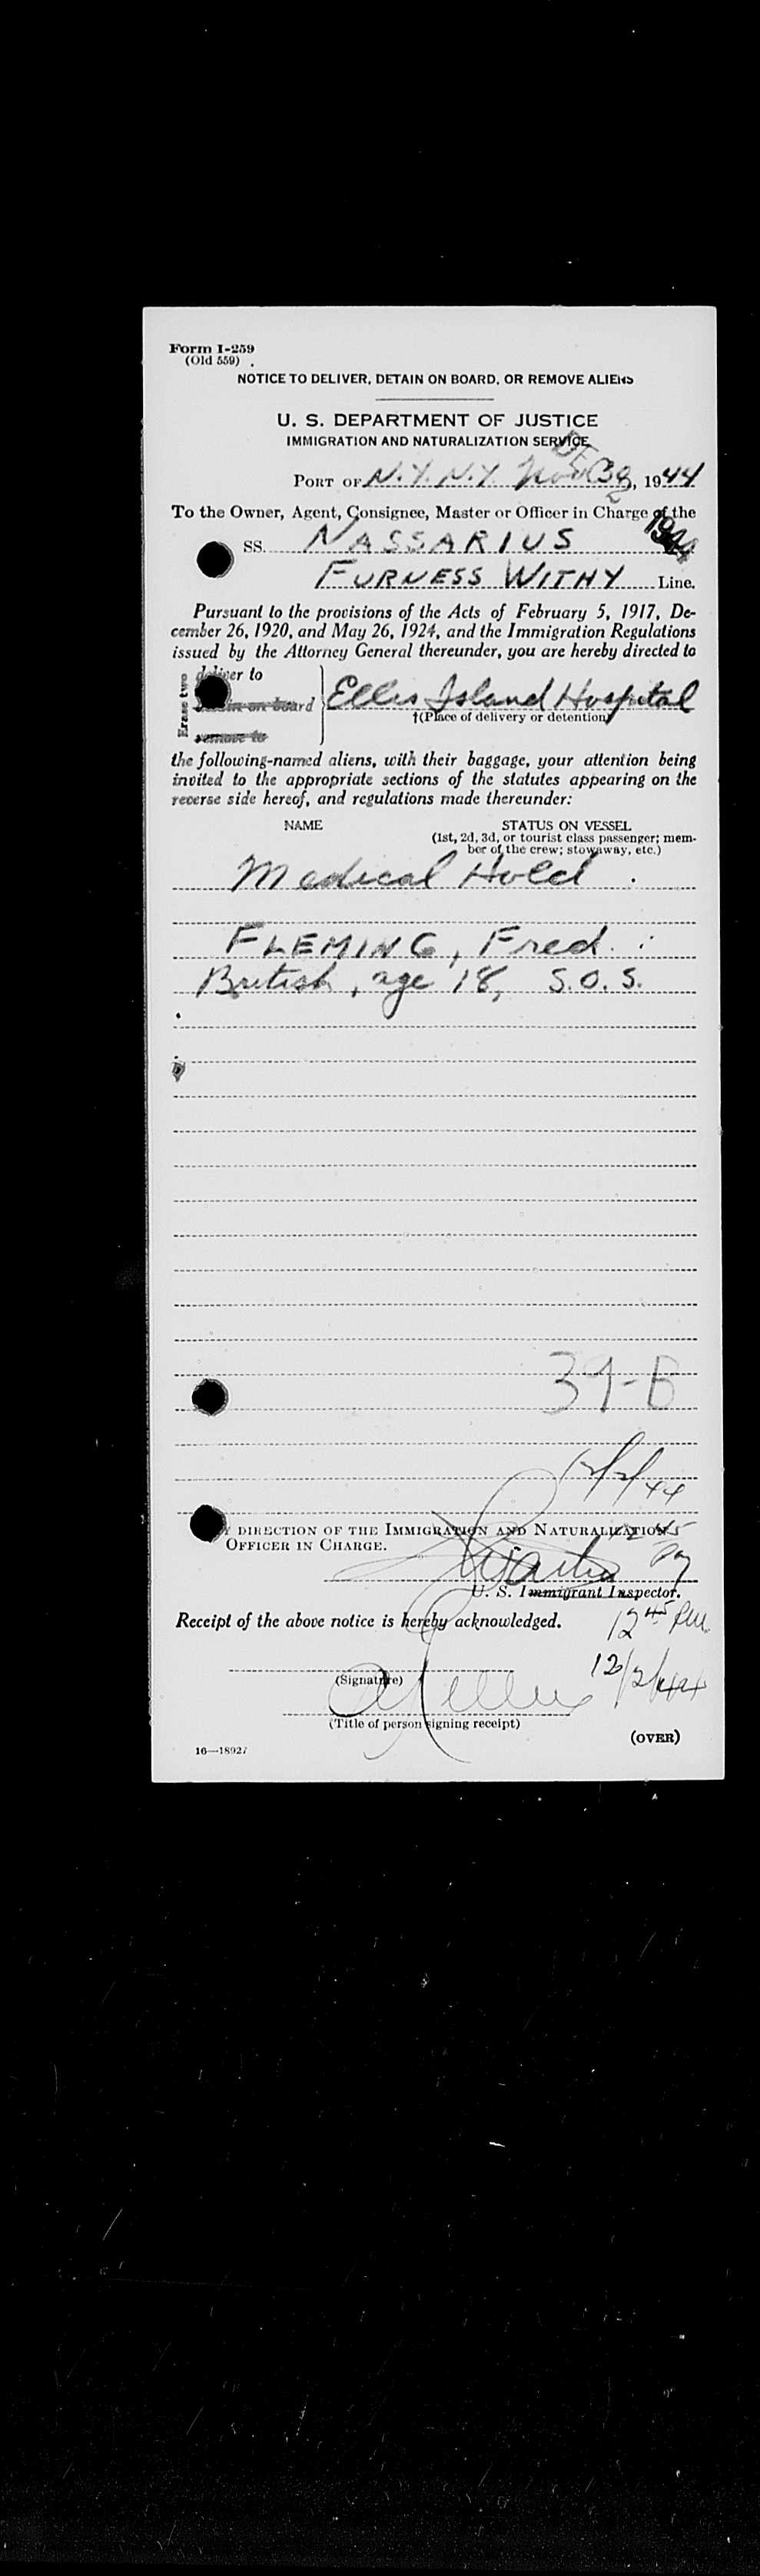 Form I-259
(Old 559)
NOTICE TO DELIVER, DETAIN ON BOARD, OR REMOVE ALIENS
U. S. DEPARTMENT OF JUSTICE
IMMIGRATION AND NATURALIZATION SERVICE
PORT OF N.Y. N.Y. Nov 30, 1944
DEC 2
1944
To the Owner, Agent, Consignee, Master or Officer in Charge of the
SS. NASSARIUS
FURNESS WITHY Line.
Pursuant to the provisions of the Acts of February 5, 1917, De-
cember 26, 1920, and May 26, 1924, and the Immigration Regulations
issued by the Attorney General thereunder, you are hereby directed to
Erase two
deliver to
detain on board
remove to
Ellis Island Hospital
†(Place of delivery or detention)
the following-named aliens, with their baggage, your attention being
invited to the appropriate sections of the statutes appearing on the
reverse side hereof, and regulations made thereunder:
NAME STATUS ON VESSEL
(1st, 2d, 3d, or tourist class passenger; mem-
ber of the crew; stowaway, etc.)
Medical Hold
FLEMING, Fred.
British, age 18, S.O.S.
39-B
12/2/44
DIRECTION OF THE IMMIGRATION AND NATURALIZATION
OFFICER IN CHARGE.
U. S. Immigrant Inspector.
Receipt of the above notice is hereby acknowledged.
12 45 PM.
12/2/44
(Signature)
(Title of person signing receipt)
(OVER)
16—18927